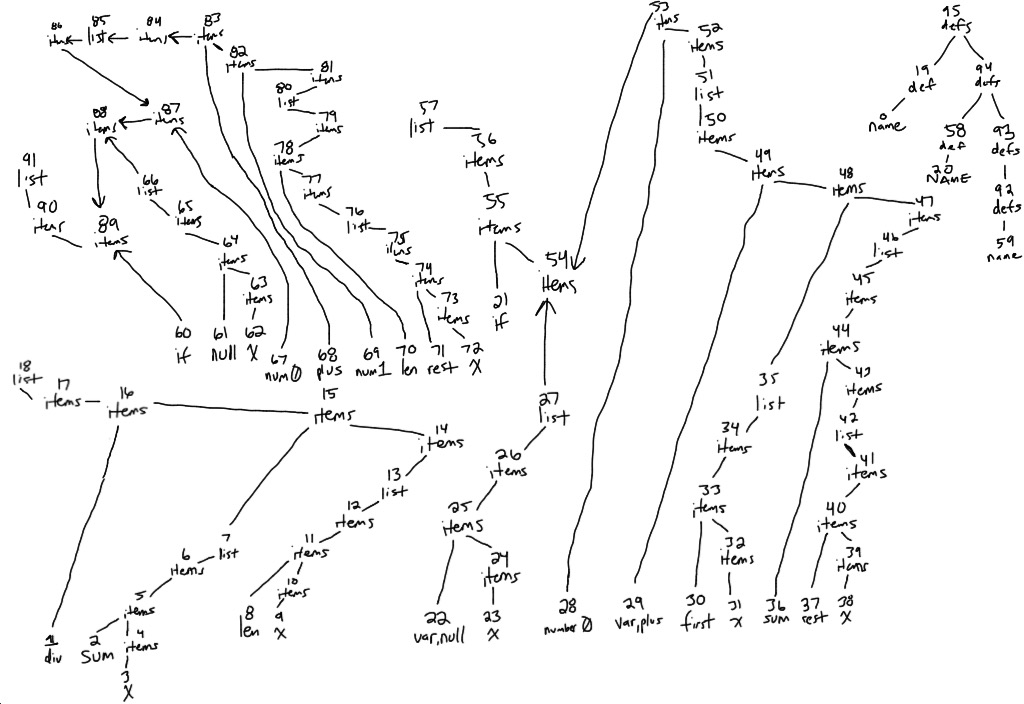 86 items
85 list
84 items
83 items
82 items
81 items
80 list
79 items
78 items
77 items
76 list
75 items
74 items
73 items
88 items
87 items
91 list
90 items
89 items
66 list
65 items
64 items
63 items
60 if
61 null
62 X
67 num0
68 plus
69 num1
70 len
71 rest
72 X
57 list
56 items
55 items
54 items
21 if
53 items
52 items
51 list
50 items
49 items
48 items
47 items
46 list
45 items
44 items
43 items
42 list
41 items
40 items
39 items
95 defs
19 def
94 defs
0 name
58 def
20 NAME
93 defs
92 defs
59 name
18 list
17 items
16 items
15 items
14 items
13 list
12 items
11 items
10 items
7 list
6 items
5 items
4 items
1 div
2 Sum
3 X
8 len
9 X
27 list
26 items
25 items
24 items
22 var,null
23 X
35 list
34 items
33 items
32 items
28 number 0
29 var,plus
30 first
31 x
36 sum
37 rest
38 X